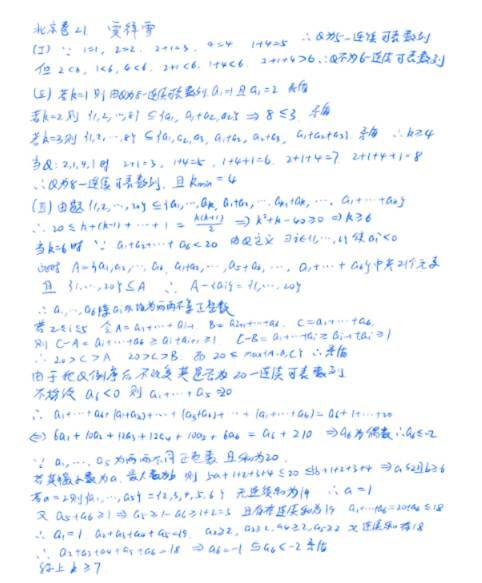 北京卷21
(I) ∵ 1=1, 2=2. 2+1=3. 4=4. 1+4=5 ∴Q为5-连续可表数列
但 2<6, 1<6, 4<6. 2+1<6. 1+4<6. 2+1+4>6 ∴Q不为6-连续可表数列
(II) 若k=1 则由Q为8-连续可表数列. a₁=1且a₁=2 矛盾
若k=2则 {1,2,…,8} ⊆{a₁, a₂, a₁+a₂} ⇒ 8≤3. 矛盾
若k=3则{1,2,…,8} ⊆{a₁,a₂,a₃, a₁+a₂, a₂+a₃, a₁+a₂+a₃}. 矛盾 ∴k≥4
当Q: 2,1,4,1时 2+1=3, 1+4=5, 1+4+1=6. 2+1+4=7. 2+1+4+1=8
∴Q为8-连续可表数列. 且 kmin=4
(III) 由题 {1,2,…,20} ⊆{a₁,…,ak, a₁+a₂, … ak-1+ak, …, a₁+…+ak}
∴ 20≤ k+(k-1)+…+1 = k(k+1)/2 ⇒ k²+k-40≥0 ⇒ k≥6
当k=6时 ∵ a₁+a₂+…+a₆<20 由Q定义 ∃i∈{1,…,6}使ai<0
此时 A={a₁,a₂,…, a₆, a₁+a₂, …, a₅+a₆, …, a₁+…+a₆}中共21个元素
且 {1,…,20}⊆A ∴ A-{ai}={1,…,20}
∴ a₁,…,a₆除ai外均为两两不等正整数
若 2≤i≤5 令A=a₁+…+ai-1. B=ai+1+…+a₆. C=a₁+…+a₆.
则 C-A=ai+…+a₆ ≥ ai+ai+1≥1 C-B=a₁+…+ai≥ai-1+ai≥1
∴ 20>C>A 20>C>B. 而 20≤max{A,B,C} ∴矛盾
由于把Q倒序后不改变其是否为20-连续可表数列
不妨设 a₆<0 则 a₁+…+a₅=20
∴ a₁+…+a₆+(a₁+a₂)+…+(a₅+a₆)+…+(a₁+…+a₆)=a₆+1+…+20
⇔ 6a₁+10a₂+12a₃+12a₄+10a₅+6a₆=a₆+210 ⇒a₆为偶数 ∴a₆≤-2
∵ a₁,…,a₅为两两不同正整数 且和为20.
若a=2则{a₁,…,a₅}={2,3,4,5,6} 无连续和为19 ∴a=1
又 a₅+a₆≥1 ⇒ a₅≥1-a₆≥1+2=3 且存在连续和为19
综上 k≥7